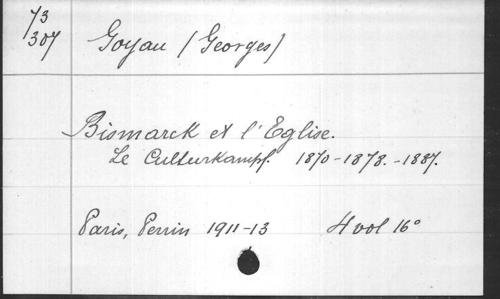 73
307
Goyau (Georges)
Bismarck et l'Eglise.
Le Culturkampf. 1870-1878.-1887.
Paris, Perrin 1911-13 4 vol 16°